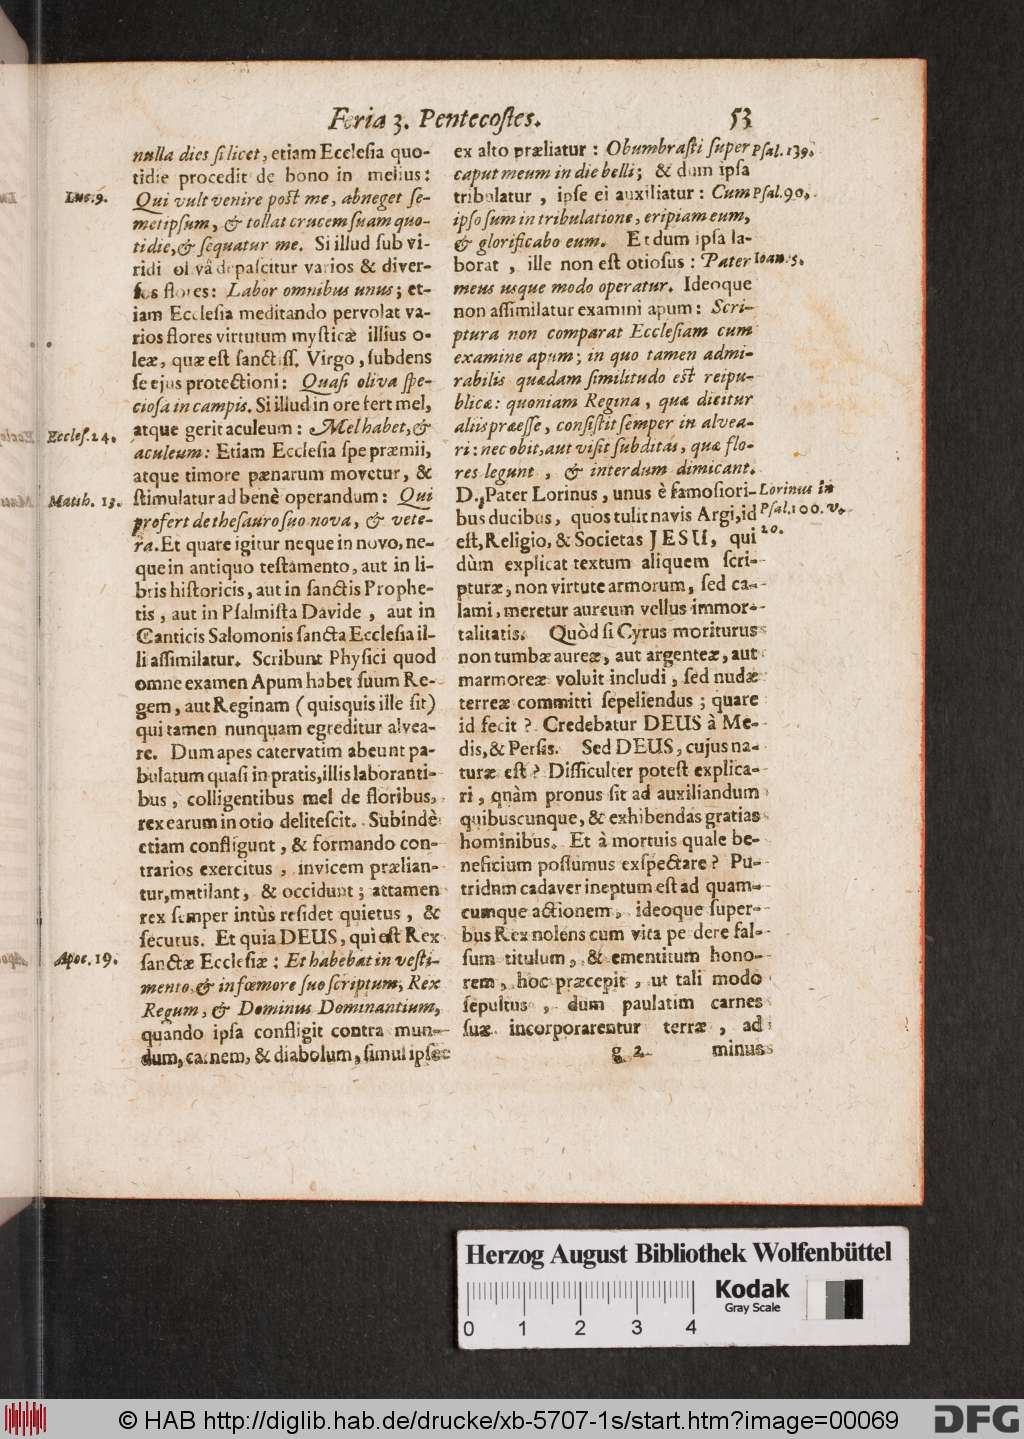 Feria 3. Pentecoſtes. 53
nulla dies ſi licet, etiam Eccleſia quo-
tidie procedit de bono in melius:
Luc. 9. Qui vult venire poſt me, abneget ſe-
metipſum, & tollat crucem ſuam quo-
tidie, & ſequatur me. Si illud ſub vi-
ridi olivâ depaſcitur varios & diver-
ſos flores: Labor omnibus unus; et-
iam Eccleſia meditando pervolat va-
rios flores virtutum myſticæ illius o-
leæ, quæ eſt ſanctiſſ. Virgo, ſubdens
ſe ejus protectioni: Quaſi oliva ſpe-
cioſa in campis. Si illud in ore fert mel,
Eccleſ. 24. atque gerit aculeum: Mel habet, &
aculeum: Etiam Eccleſia ſpe præmii,
atque timore pænarum movetur, &
Matth. 13. ſtimulatur ad benè operandum: Qui
profert de theſauro ſuo nova, & vete-
ra. Et quare igitur neque in novo, ne-
que in antiquo teſtamento, aut in li-
bris hiſtoricis, aut in ſanctis Prophe-
tis, aut in Pſalmiſta Davide, aut in
Canticis Salomonis ſancta Eccleſia il-
li aſſimilatur. Scribunt Phyſici quod
omne examen Apum habet ſuum Re-
gem, aut Reginam (quisquis ille ſit)
qui tamen nunquam egreditur alvea-
re. Dum apes catervatim abeunt pa-
bulatum quaſi in pratis, illis laboranti-
bus, colligentibus mel de floribus,
rex earum in otio deliteſcit. Subindè
etiam confligunt, & formando con-
trarios exercitus, invicem prælian-
tur, mutilant, & occidunt; attamen
rex ſemper intùs reſidet quietus, &
ſecurus. Et quia DEUS, qui eſt Rex
Apoc. 19. ſanctæ Eccleſiæ: Et habebat in veſti-
mento, & in fœmore ſuo ſcriptum, Rex
Regum, & Dominus Dominantium,
quando ipſa confligit contra mun-
dum, carnem, & diabolum, ſimul ipſe
ex alto præliatur: Obumbraſti ſuper Pſal. 139.
caput meum in die belli; & dum ipſa
tribulatur, ipſe ei auxiliatur: Cum Pſal. 90.
ipſo ſum in tribulatione, eripiam eum,
& glorificabo eum. Et dum ipſa la-
borat, ille non eſt otioſus: Pater Ioan. 5.
meus usque modo operatur. Ideoque
non aſſimilatur examini apum: Scri-
ptura non comparat Eccleſiam cum
examine apum; in quo tamen admi-
rabilis quædam ſimilitudo eſt reipu-
blicæ: quoniam Regina, quæ dicitur
aliis præeſſe, conſiſtit ſemper in alvea-
ri: nec obit, aut viſit ſubditas, quæ flo-
res legunt, & interdum dimicant.
D. Pater Lorinus, unus è famoſiori- Lorinus in
bus ducibus, quos tulit navis Argi, id Pſal. 100. v.
eſt, Religio, & Societas JESU, qui 20.
dùm explicat textum aliquem ſcri-
pturæ, non virtute armorum, ſed ca-
lami, meretur aureum vellus immor-
talitatis. Quòd ſi Cyrus moriturus
non tumbæ aureæ, aut argenteæ, aut
marmoreæ voluit includi, ſed nudæ
terreæ committi ſepeliendus; quare
id fecit? Credebatur DEUS à Me-
dis, & Perſis. Sed DEUS, cujus na-
turæ eſt? Difficulter poteſt explica-
ri, quàm pronus ſit ad auxiliandum
quibuscunque, & exhibendas gratias
hominibus. Et à mortuis quale be-
neficium poſſumus exſpectare? Pu-
tridum cadaver ineptum eſt ad quam-
cumque actionem, ideoque ſuper-
bus Rex nolens cum vita perdere fal-
ſum titulum, & ementitum hono-
rem, hoc præcepit, ut tali modo
ſepultus, dum paulatim carnes
ſuæ incorporarentur terræ, ad
g 2 minus
Herzog August Bibliothek Wolfenbüttel
Kodak
Gray Scale
0 1 2 3 4
© HAB http://diglib.hab.de/drucke/xb-5707-1s/start.htm?image=00069
DFG